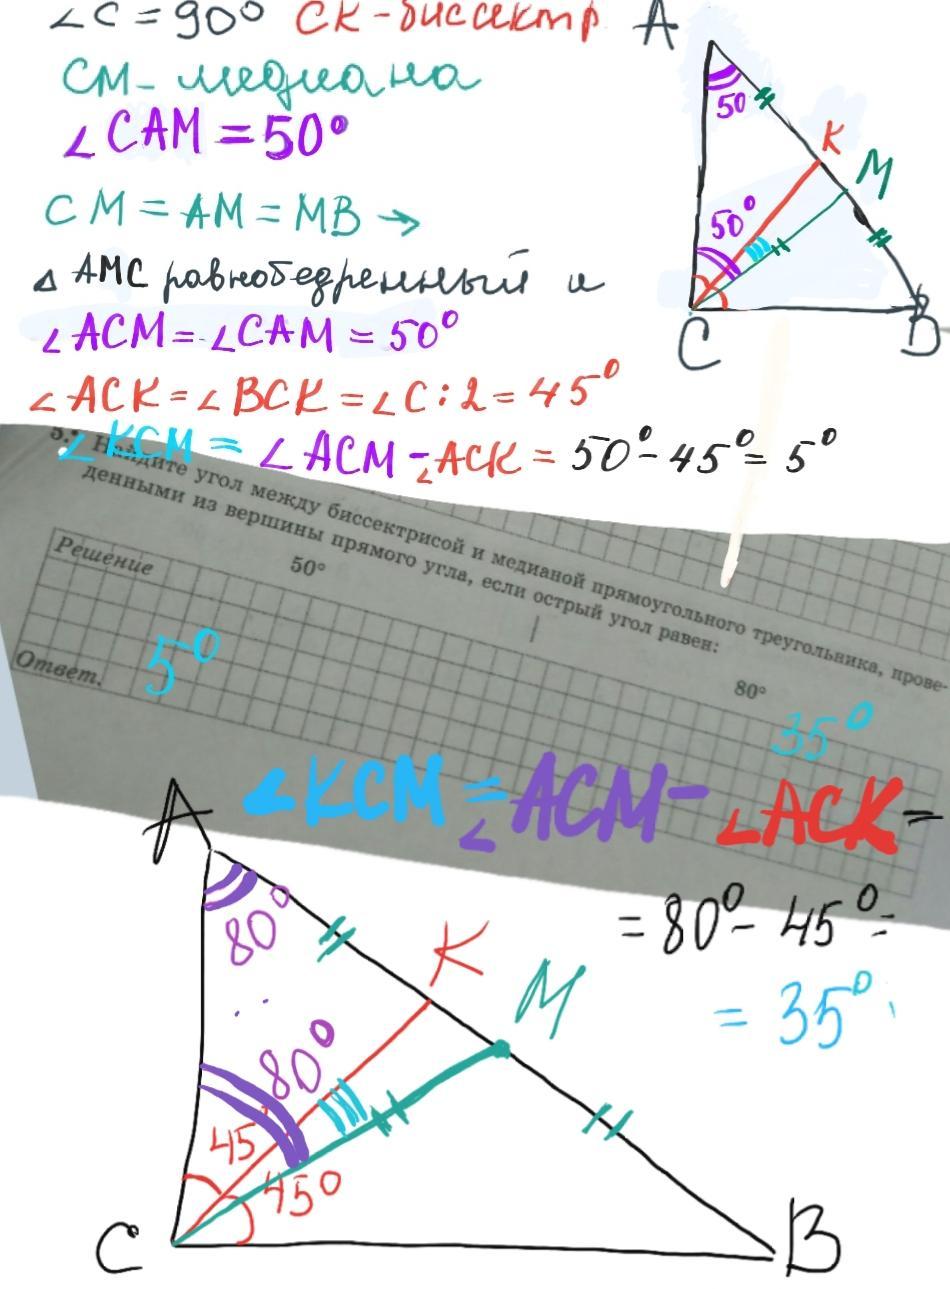 ∠C = 90° CK - биссектр
CM - медиана
∠CAM = 50°
CM = AM = MB →
△ AMC равнобедренный и
∠ACM = ∠CAM = 50°
∠ACK = ∠BCK = ∠C : 2 = 45°
∠KCM = ∠ACM - ∠ACK = 50° - 45° = 5°
A
50
K
M
50°
C
B
5. Найдите угол между биссектрисой и медианой прямоугольного треугольника, прове-
денными из вершины прямого угла, если острый угол равен:
50°
80°
Решение
Ответ.
5°
35°
∠KCM = ∠ACM - ∠ACK =
= 80° - 45° =
= 35°
A
80°
K
M
80°
45
45°
C
B